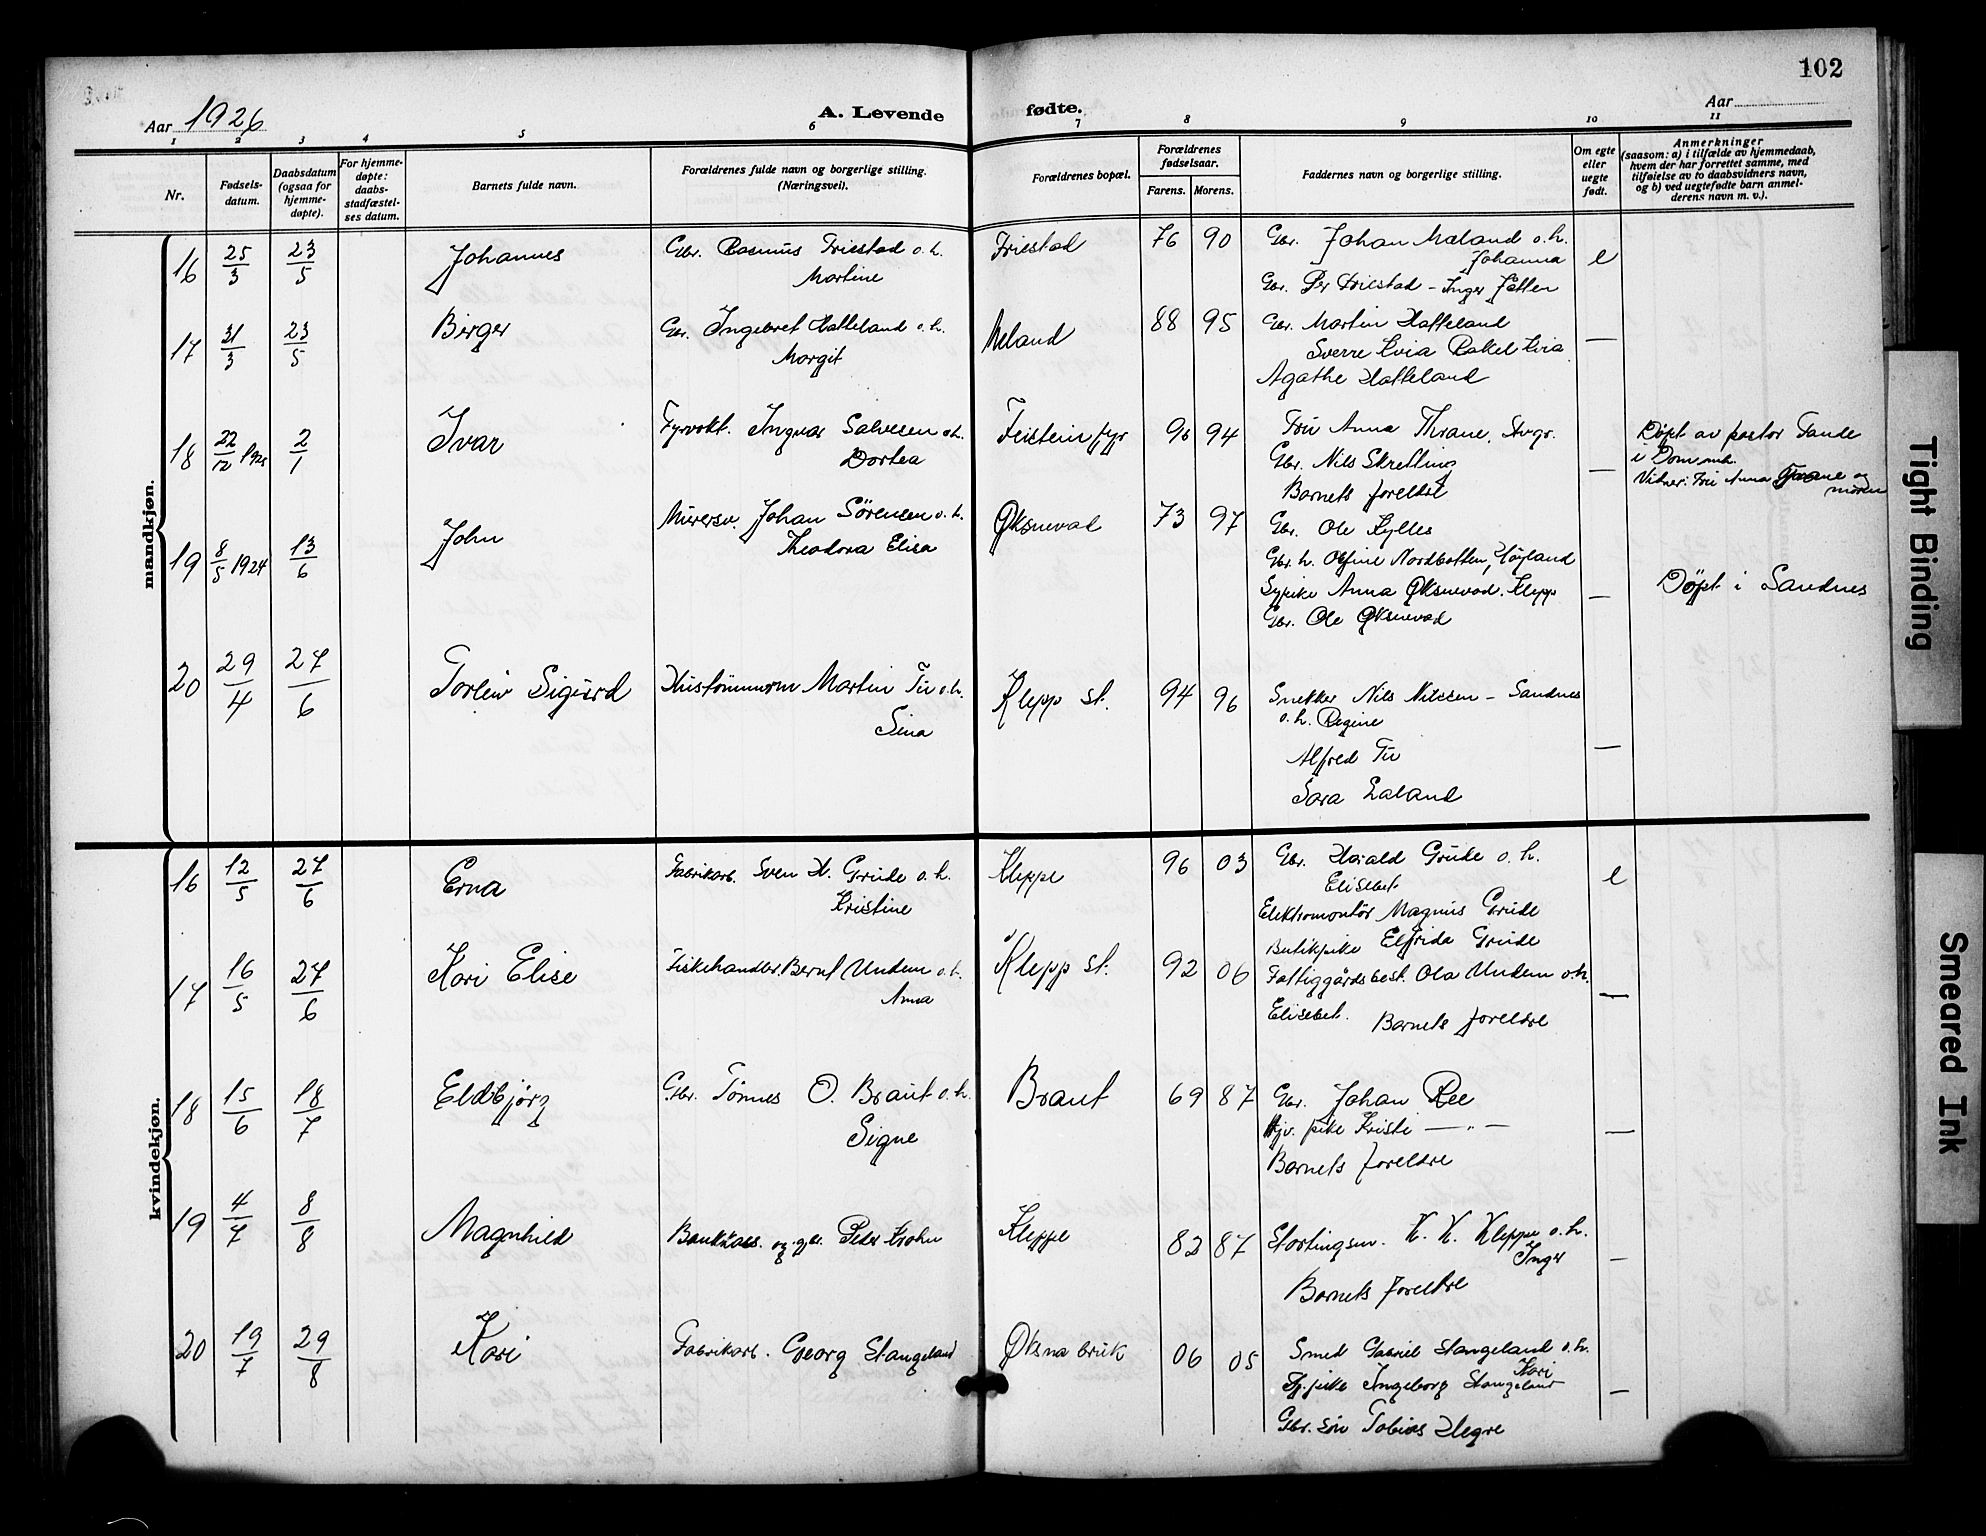 102
Aar 1926
A. Levende fødte.
Aar
1 2 3 4 5 6 7 8 9 10 11
Nr.
Fødsels-
datum.
Daabsdatum
(ogsaa for
hjemme-
døpte).
For hjemme-
døpte:
daabs-
stadfæstel-
ses datum.
Barnets fulde navn.
Forældrenes fulde navn og borgerlige stilling.
(Næringsvei).
Forældrenes bopæl.
Forældrenes
fødselsaar.
Farens. Morens.
Faddernes navn og borgerlige stilling.
Om egte
eller
uegte
født.
Anmerkninger
(saasom: a) i tilfælde av hjemmedaab,
hvem der har forrettet samme, med
tilføielse av to daabsvidners navn,
og b) ved uegtefødte barn anmel-
derens navn m. v.).
mandkjøn.
16 25/3 23/5 Johannes Gbr. Rasmus Friestad o. h. Friestad 76 90 Gbr. Johan Mæland o. h.
Martine Johanna e
Gbr. Per Friestad - Inger
17 31/3 23/5 Birger Gbr. Ingebret Hatteland o. h. Meland 88 95 Gbr. Martin Hatteland
Margit Sverre Hvia Rakel Hvia —
Agathe Hatteland
18 22/12 1925 2/1 Ivar Fyrvokt. Ingvar Salvesen o. h. Feistein fyr 96 94 Fru Anna Thrane, Stvgr. Döpt av pastor Tande
Dortea Gbr. Nils Skretting — i Domsmk.
Barnets foreldre Vitner: Fru Anna Thrane og
moren
19 8/5 1924 13/6 John Murersv. Johan Sörensen o. h. Øksnevad 73 97 Gbr. Ole Kylles
Theodora Elisa Gbr. h. Olfine Nordbotten, Höyland
Sypike Anna Øksnevad. Klepp — Döpt i Sandnes
Gbr. Ole Øksnevad
20 29/4 27/6 Torleiv Sigurd Hustömmerm Martin Tu o. h. Klepp st. 94 96 Snekker Nils Nilssen - Sandnes
Sina o. h. Regine
Alfred Tu —
Sara Laland
kvindekjøn.
16 12/5 27/6 Erna Fabrikarb. Sven H. Grude o. h. Kleppe 96 03 Gbr. Harald Grude o. h.
Kristine Elisebet e
Elektromontör Magnus Grude
Butikpike Elfrida Grude
17 16/5 27/6 Kari Elise Fiskehandler. Bernt Undem o. h. Klepp st. 92 06 Fattiggårdsbest. Ola Undem o. h.
Anna Elisebet. Barnets foreldre —
18 15/6 18/7 Eldbjörg Gbr. Tönnes O. Braut o. h. Braut 69 87 Gbr. Johan Ree
Signe Hjv. pike Kristi — " — —
Barnets foreldre
19 4/7 8/8 Magnhild Bankkass. og gbr. Peder Krohn Kleppe 82 87 Stortingsm. K. K. Kleppe o. h.
Inger —
Barnets foreldre
20 19/7 29/8 Kari Fabrikarb. Georg Stangeland Øksna bruk 06 05 Smed Gabriel Stangeland o. h.
Kari
pike Ingeborg Stangeland —
Gbr. sön Tobias Hegre
Tight Binding
Smeared Ink